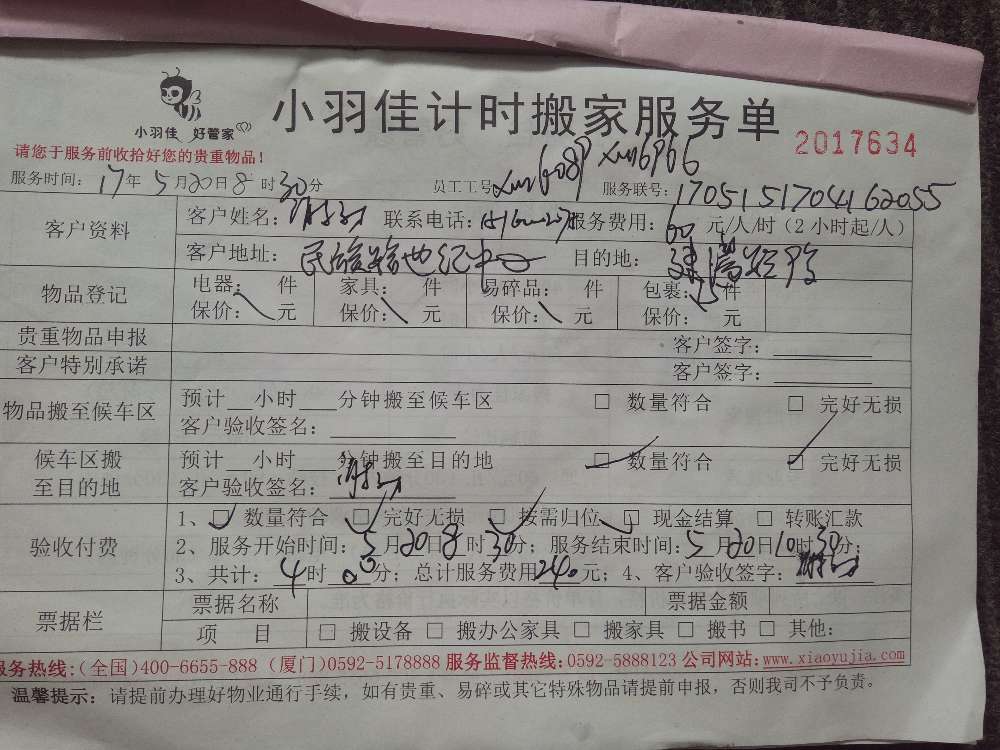 小羽佳 好管家
小羽佳计时搬家服务单
2017634
请您于服务前收拾好您的贵重物品!
服务时间: 17年 5月20日8时30分 员工工号 xm6089 xm6966 服务联号: 1705151704162055
客户资料 客户姓名: 联系电话: 服务费用: 60 元/人/时 (2小时起/人)
客户地址: 民族路世纪中心 目的地:
物品登记 电器: 件 家具: 件 易碎品: 件 包裹: 件
保价: 元 保价: 元 保价: 元 保价: 元
贵重物品申报 客户签字:
客户特别承诺 客户签字:
物品搬至候车区 预计__小时___分钟搬至候车区 □ 数量符合 □ 完好无损
客户验收签名:
候车区搬至目的地 预计__小时___分钟搬至目的地 □ 数量符合 □ 完好无损
客户验收签名:
验收付费 1、□ 数量符合 □ 完好无损 □ 按需归位 □ 现金结算 □ 转账汇款
2、服务开始时间: 5月20日8时30分; 服务结束时间: 5月20日10时30分;
3、共计: 4时00分; 总计服务费用240元; 4、客户验收签字:
票据栏 票据名称 票据金额
项 目 □ 搬设备 □ 搬办公家具 □ 搬家具 □ 搬书 □ 其他:
服务热线:(全国)400-6655-888 (厦门)0592-5178888 服务监督热线:0592-5888123 公司网站:www.xiaoyujia.com
温馨提示: 请提前办理好物业通行手续, 如有贵重、易碎或其它特殊物品请提前申报, 否则我司不予负责。